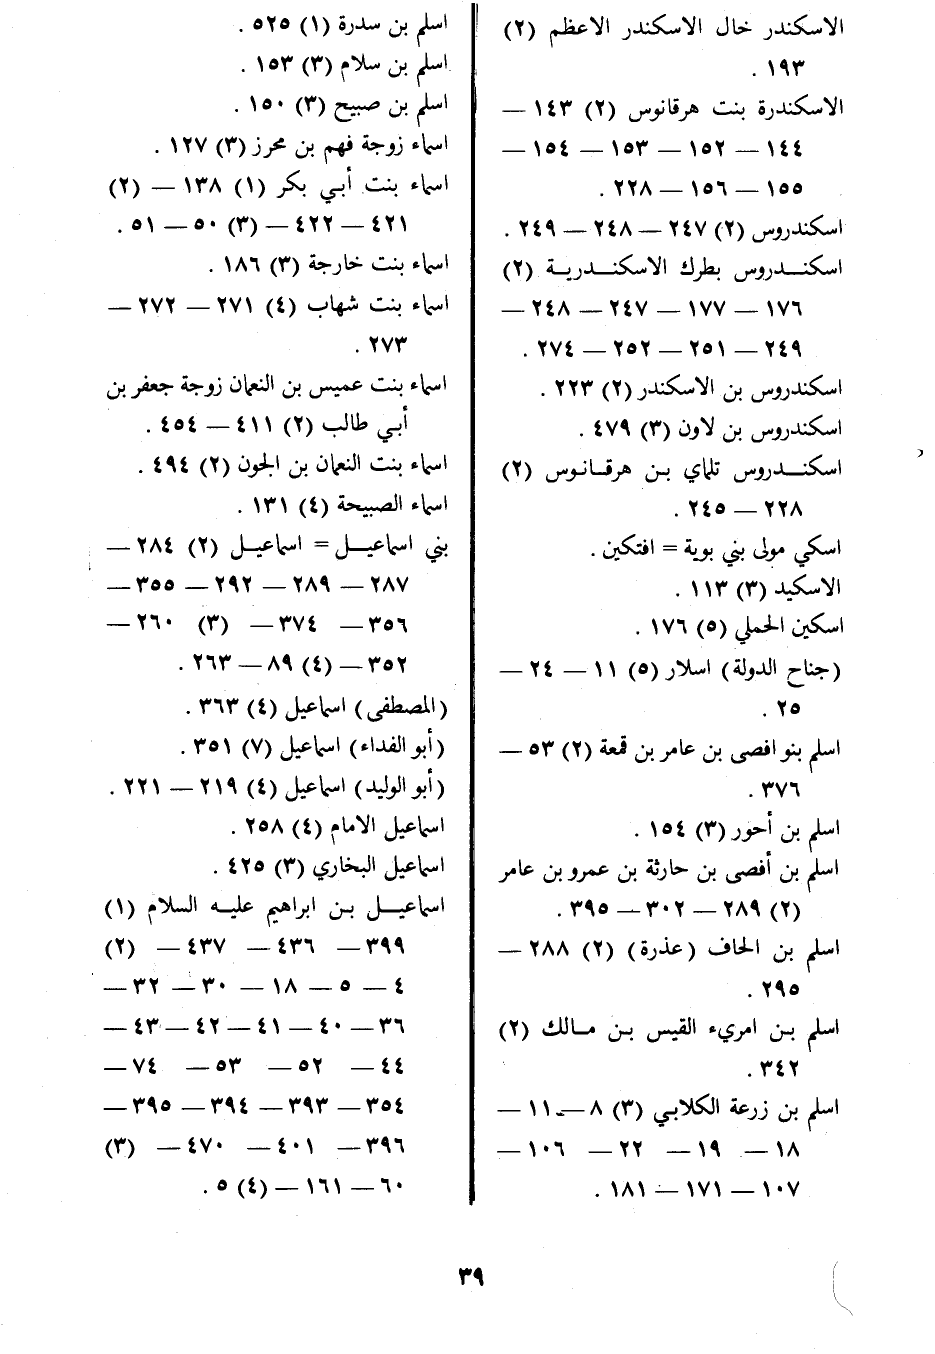 الاسكندر خال الاسكندر الاعظم (٢)
١٩٣ .
الاسكندرة بنت هرقانوس (٢) ١٤٣ —
١٤٤ — ١٥٢ — ١٥٣ — ١٥٤ —
١٥٥ — ١٥٦ — ٢٢٨ .
اسكندروس (٢) ٢٤٧ — ٢٤٨ — ٢٤٩ .
اسكندروس بطرك الاسكندرية (٢)
١٧٦ — ١٧٧ — ٢٤٧ — ٢٤٨ —
٢٤٩ — ٢٥١ — ٢٥٢ — ٢٧٤ .
اسكندروس بن الاسكندر (٢) ٢٢٣ .
اسكندروس بن لاون (٣) ٤٧٩ .
اسكندروس تلماي بن هرقانوس (٢)
٢٢٨ — ٢٤٥ .
اسكي مولى بني بوية = افتكين .
الاسكيد (٣) ١١٣ .
اسكين الحملي (٥) ١٧٦ .
(جناح الدولة) اسلار (٥) ١١ — ٢٤ —
٢٥ .
اسلم بنو افصى بن عامر بن قمعة (٢) ٥٣ —
٣٧٦ .
اسلم بن أحور (٣) ١٥٤ .
اسلم بن أفصى بن حارثة بن عمرو بن عامر
(٢) ٢٨٩ — ٣٠٢ — ٣٩٥ .
اسلم بن الحاف (عذرة) (٢) ٢٨٨ —
٢٩٥ .
اسلم بن امريء القيس بن مالك (٢)
٣٤٢ .
اسلم بن زرعة الكلابي (٣) ٨ — ١١ —
١٨ — ١٩ — ٢٢ — ١٠٦ —
١٠٧ — ١٧١ — ١٨١ .
اسلم بن سدرة (١) ٥٢٥ .
اسلم بن سلام (٣) ١٥٣ .
اسلم بن صبيح (٣) ١٥٠ .
اسماء زوجة فهم بن محرز (٣) ١٢٧ .
اسماء بنت أبي بكر (١) ١٣٨ — (٢)
٤٢١ — ٤٢٢ — (٣) ٥٠ — ٥١ .
اسماء بنت خارجة (٣) ١٨٦ .
اسماء بنت شهاب (٤) ٢٧١ — ٢٧٢ —
٢٧٣ .
اسماء بنت عميس بن النعمان زوجة جعفر بن
أبي طالب (٢) ٤١١ — ٤٥٤ .
اسماء بنت النعمان بن الجون (٢) ٤٩٤ .
اسماء الصبيحة (٤) ١٣١ .
بني اسماعيل = اسماعيل (٢) ٢٨٤ —
٢٨٧ — ٢٨٩ — ٢٩٢ — ٣٥٥ —
٣٥٦ — ٣٧٤ — (٣) ٢٦٠ —
٣٥٢ — (٤) ٨٩ — ٢٦٣ .
(المصطفى) اسماعيل (٤) ٣٦٣ .
(أبو الفداء) اسماعيل (٧) ٣٥١ .
(أبو الوليد) اسماعيل (٤) ٢١٩ — ٢٢١ .
اسماعيل الامام (٤) ٢٥٨ .
اسماعيل البخاري (٣) ٤٢٥ .
اسماعيل بن ابراهيم عليه السلام (١)
٣٩٩ — ٤٣٦ — ٤٣٧ — (٢)
٤ — ٥ — ١٨ — ٣٠ — ٣٢ —
٣٦ — ٤٠ — ٤١ — ٤٢ — ٤٣ —
٤٤ — ٥٢ — ٥٣ — ٧٤ —
٣٥٤ — ٣٩٣ — ٣٩٤ — ٣٩٥ —
٣٩٦ — ٤٠١ — ٤٧٠ — (٣)
٦٠ — ١٦١ — (٤) ٥ .
٣٩